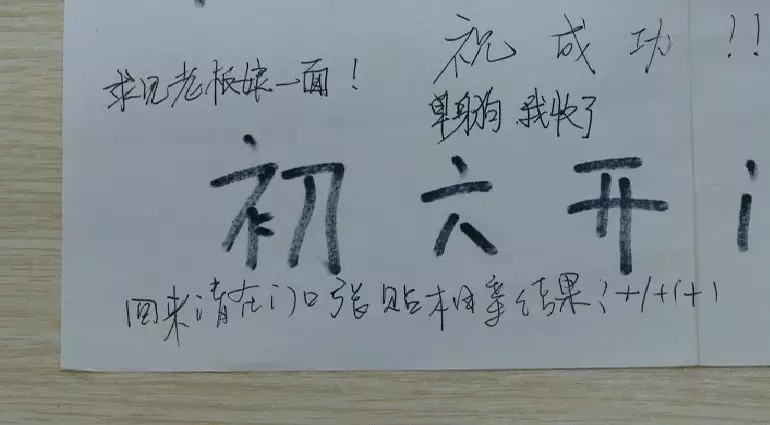 祝成功!!
求见老板娘一面!
单身狗,我收了
初六开
回来请在门口张贴相亲结果!+1+1+1